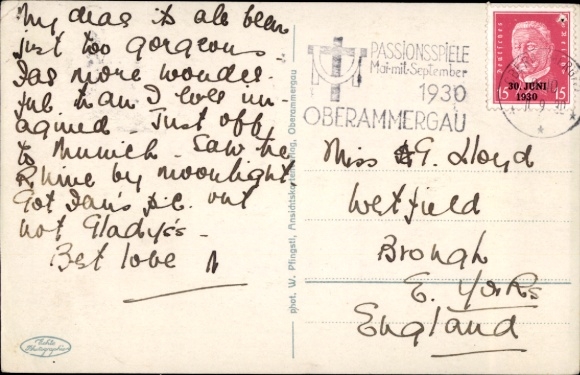 My dear its all been
just too gorgeous
Far more wonder-
ful than I ever im-
agined. Just off
to Munich. Saw the
Rhine by moonlight
Got Ian's p.c. but
not Gladys's -
Best love
phot. W. Pfingstl, Ansichtskartenverlag, Oberammergau
Echte
Photographie
PASSIONSSPIELE
Mai mit September
1930
OBERAMMERGAU
Deutsches Reich
30. JUNI
1930
15 15
Miss G. Lloyd
Westfield
Brough
E. Yorks
England